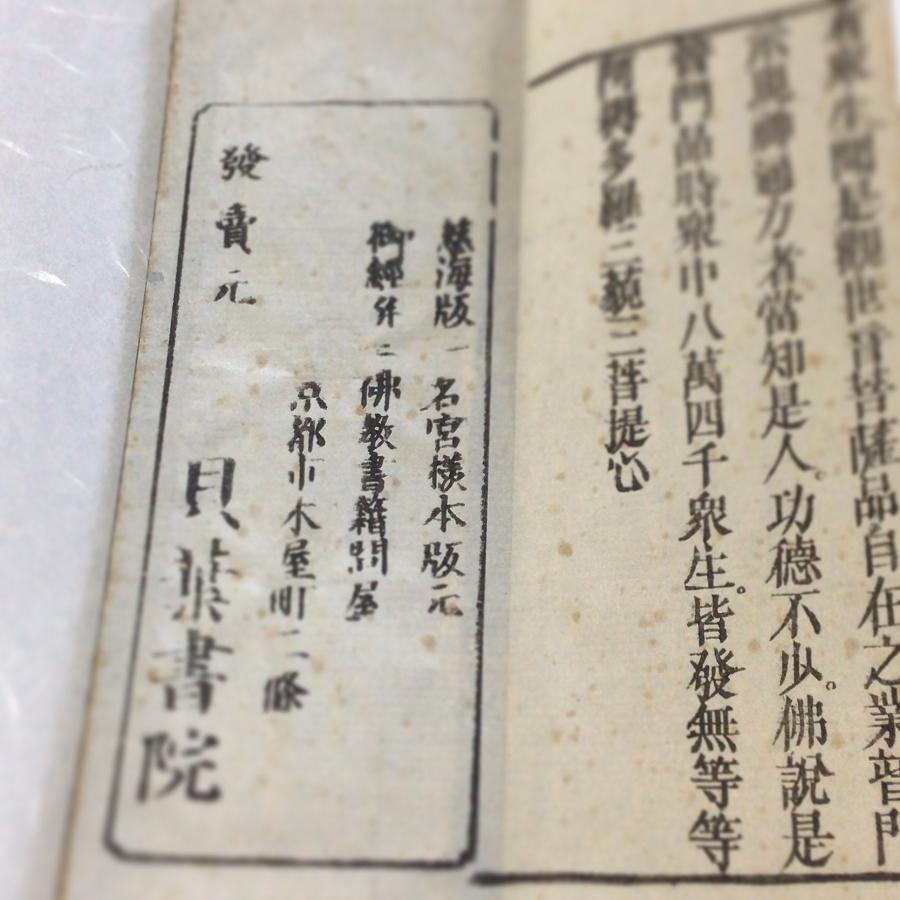 若有衆生聞是觀世音菩薩品自在之業普門
示現神通力者當知是人。功德不少。佛說是
普門品時衆中八萬四千衆生。皆發無等等
阿耨多羅三藐三菩提心
慈海版一名宮樣本版元
御經伴ニ佛教書籍問屋
京都市木屋町二條
發賣元
貝葉書院